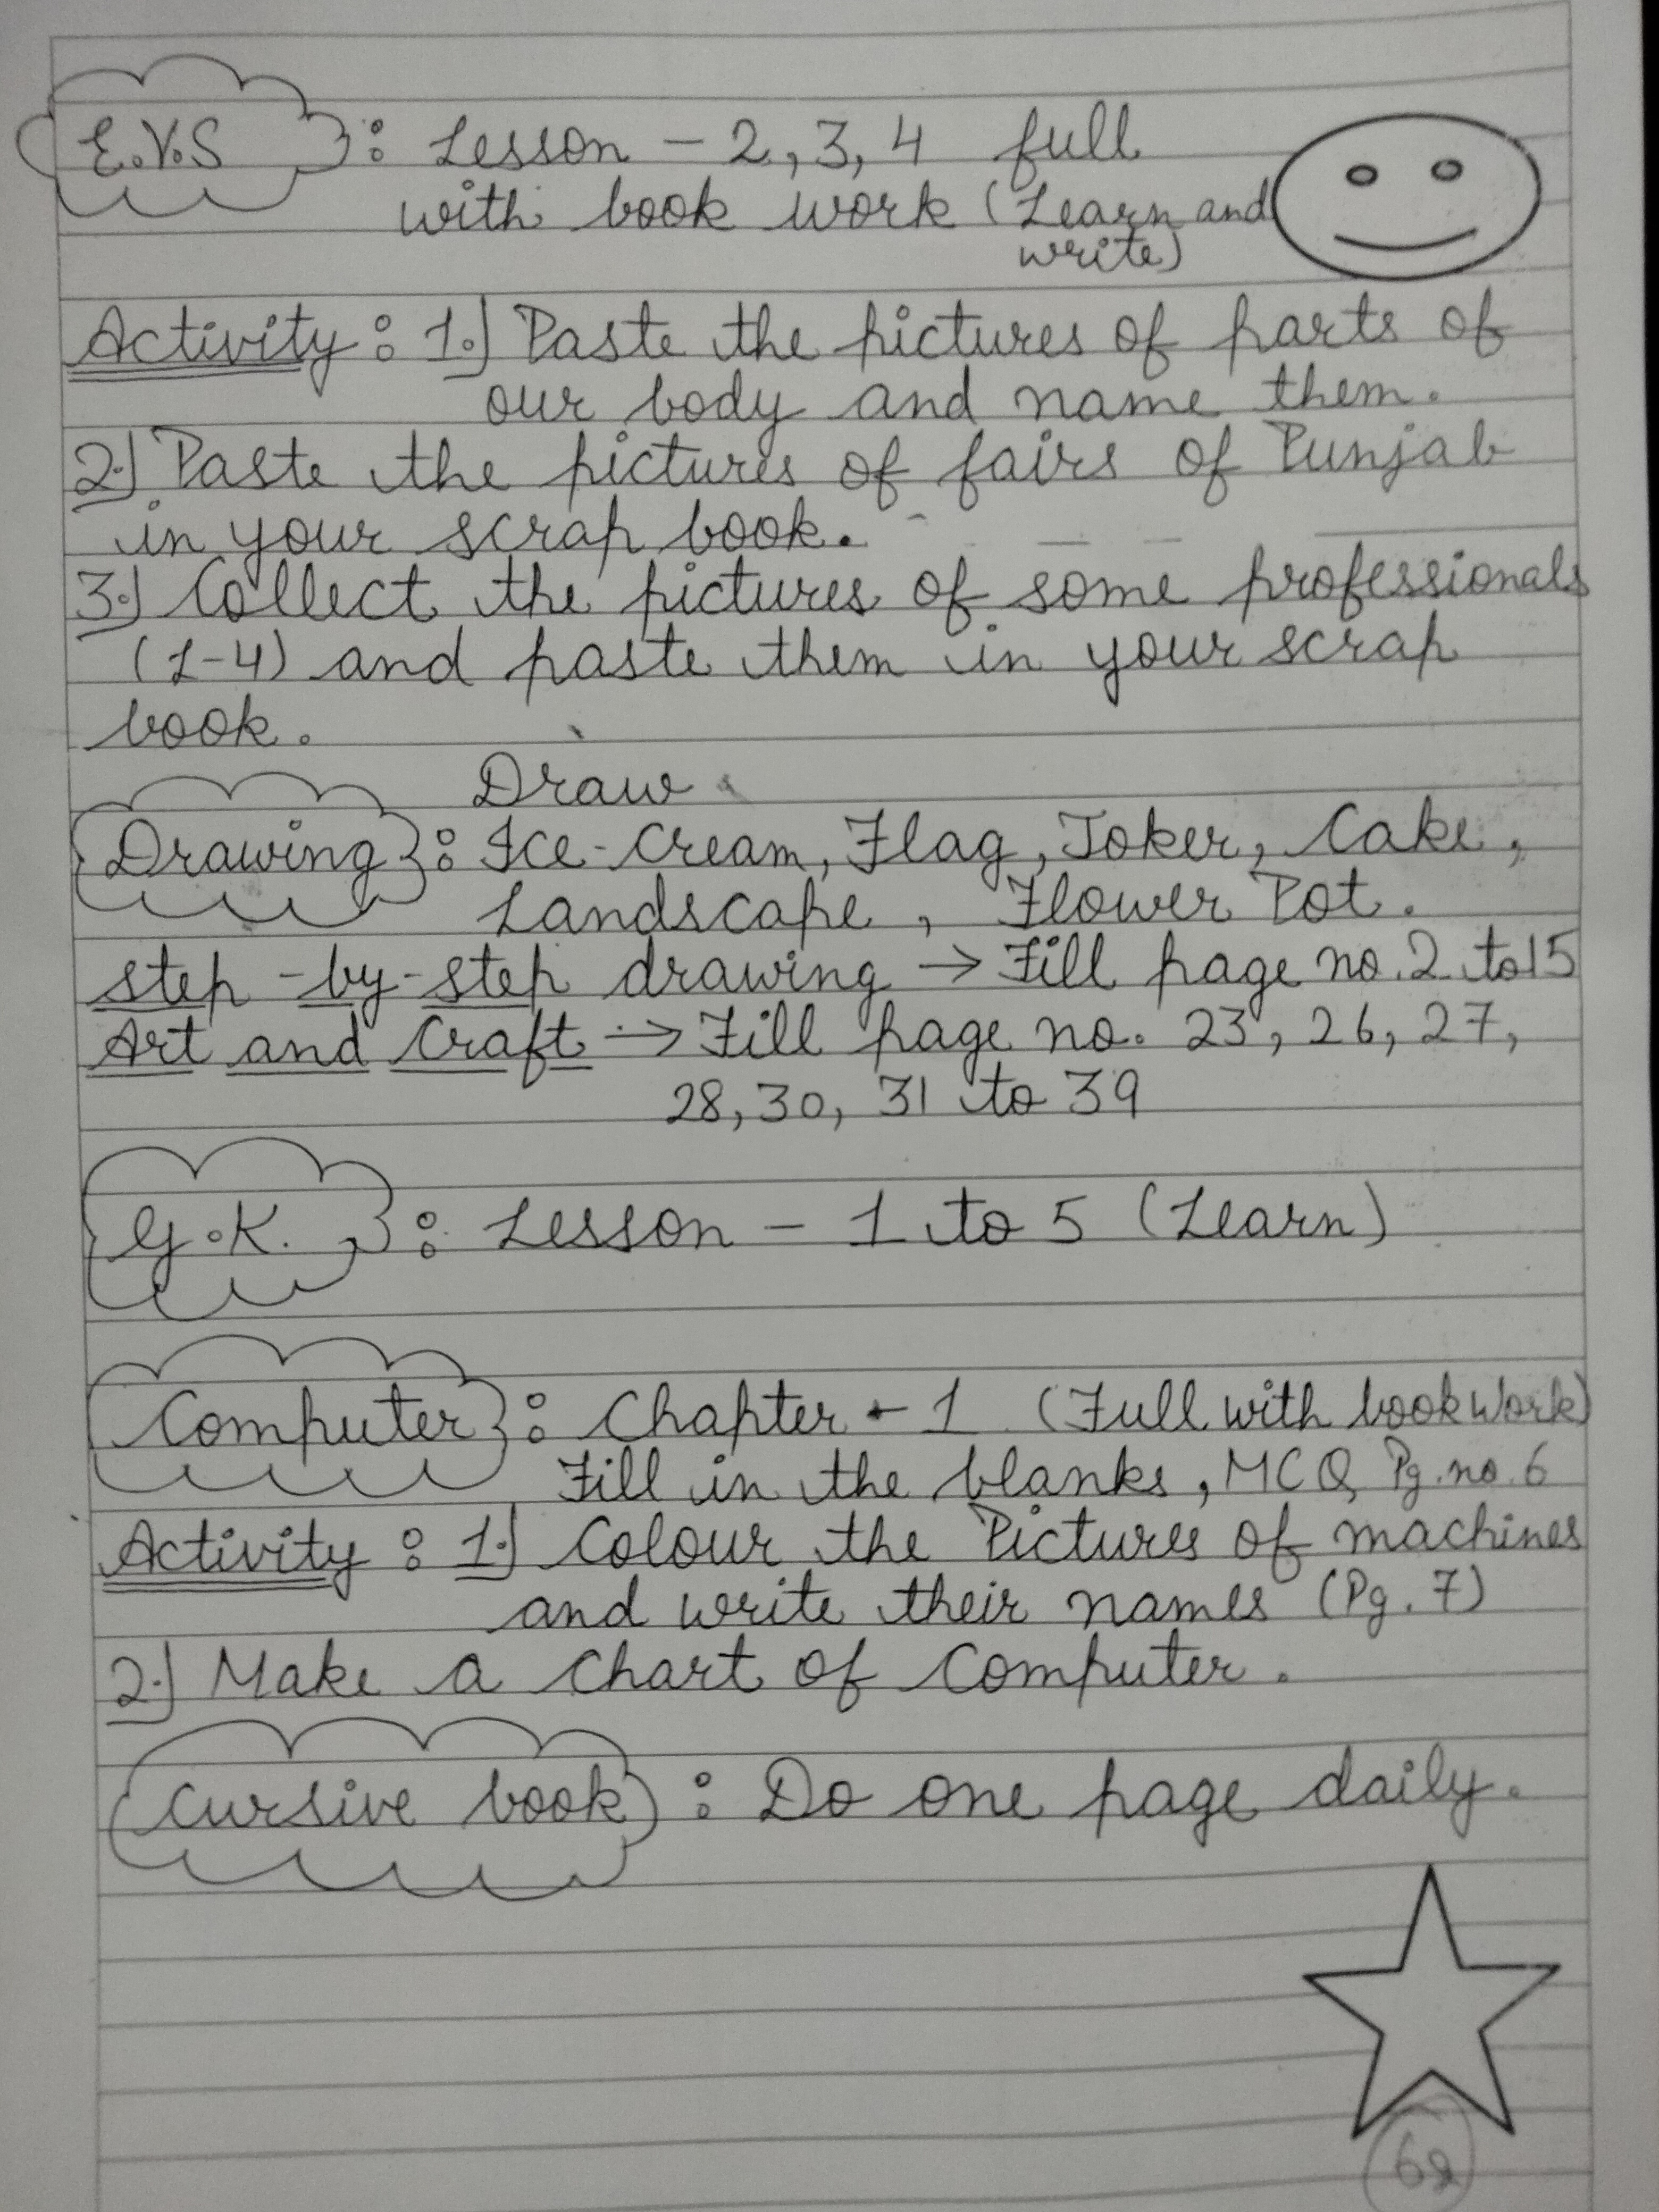 E.V.S : Lesson - 2, 3, 4 full
with book work (Learn and
write)
Activity : 1.) Paste the pictures of parts of
our body and name them.
2.) Paste the pictures of fairs of Punjab
in your scrap book.
3.) Collect the pictures of some professionals
(1-4) and paste them in your scrap
book.
Draw
Drawing : Ice-Cream, Flag, Joker, Cake,
Landscape, Flower Pot.
step-by-step drawing → Fill page no. 2 to 15
Art and Craft → Fill page no. 23, 26, 27,
28, 30, 31 to 39
G.K. : Lesson - 1 to 5 (Learn)
Computer : Chapter - 1 (Full with book work)
Fill in the blanks, MCQ Pg. no. 6
Activity : 1.) Colour the Pictures of machines
and write their names (Pg. 7)
2.) Make a Chart of Computer.
Cursive book : Do one page daily.